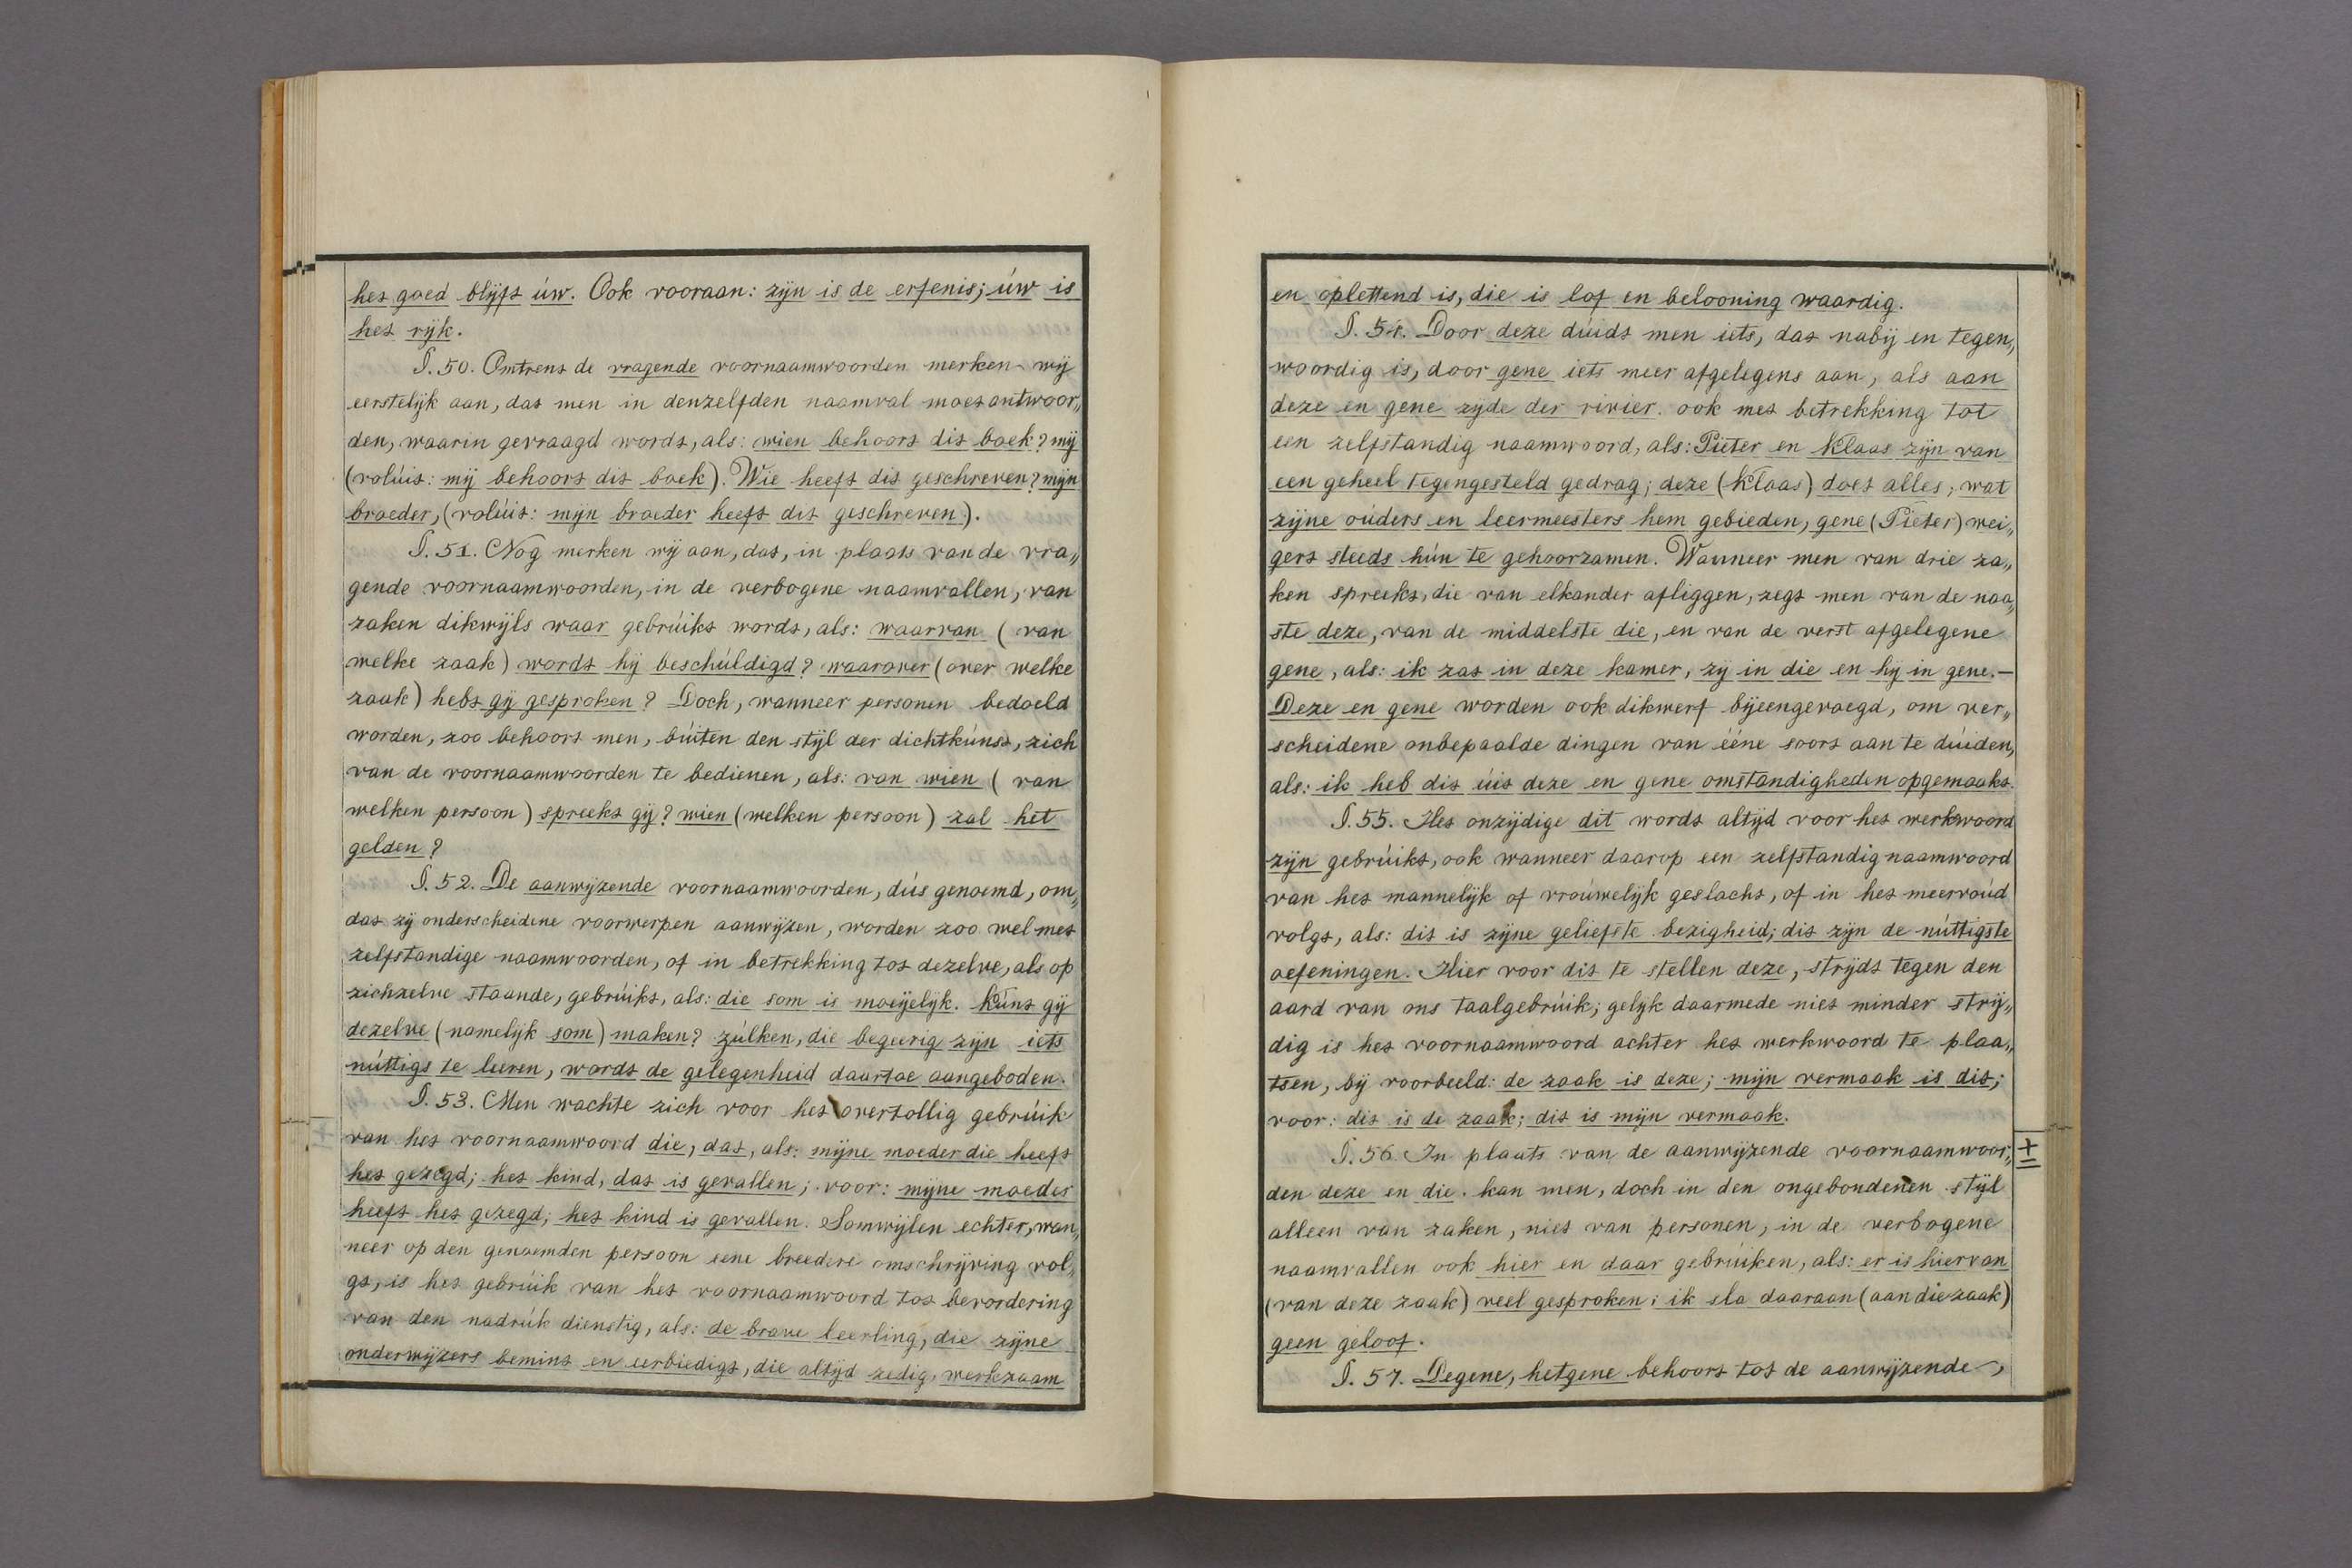 het goed blijft úw. Ook vooraan: zijn is de erfenis; úw is
het rijk.
§. 50. Omtrent de vragende voornaamwoorden merken wij
eerstelijk aan, dat men in denzelfden naamval moet antwoor„
den, waarin gevraagd wordt, als: wien behoort dit boek? mij
(volúit: mij behoort dit boek). Wie heeft dit geschreven? mijn
broeder, (volúit: mijn broeder heeft dit geschreven).
§. 51. Nog merken wij aan, dat, in plaats van de vra„
gende voornaamwoorden, in de verbogene naamvallen, van
zaken dikwijls waar gebrúikt wordt, als: waarvan (van
welke zaak) wordt hij beschúldigd? waarover (over welke
zaak) hebt gij gesproken? Doch, wanneer personen bedoeld
worden, zoo behoort men, búiten den stijl der dichtkúnst, zich
van de voornaamwoorden te bedienen, als: van wien (van
welken persoon) spreekt gij? wien (welken persoon) zal het
gelden?
§. 52. De aanwijzende voornaamwoorden, dús genoemd, om„
dat zij onderscheidene voorwerpen aanwijzen, worden zoo wel met
zelfstandige naamwoorden, of in betrekking tot dezelve, als op
zichzelve staande, gebrúikt, als: die som is moeijelijk. Kúnt gij
dezelve (namelijk som) maken? zúlken, die begeerig zijn iets
núttigs te leeren, wordt de gelegenheid daartoe aangeboden.
§. 53. Men wachte zich voor het overtollig gebrúik
van het voornaamwoord die, dat, als: mijne moeder die heeft
het gezegd; het kind, dat is gevallen; voor: mijne moeder
heeft het gezegd; het kind is gevallen. Somwijlen echter, wan„
neer op den genoemden persoon eene breedere omschrijving vol„
gt, is het gebrúik van het voornaamwoord tot bevordering
van den nadrúk dienstig, als: de brave leerling, die zijne
onderwijzers bemint en eerbiedigt, die altijd zedig, werkzaam
en oplettend is, die is lof en belooning waardig.
§. 54. Door deze dúidt men iets, dat nabij en tegen„
woordig is, door gene iets meer afgelegens aan, als aan
deze en gene zijde der rivier. ook met betrekking tot
een zelfstandig naamwoord, als: Pieter en Klaas zijn van
een geheel tegengesteld gedrag; deze (Klaas) doet alles, wat
zijne oúders en leermeesters hem gebieden, gene (Pieter) wei„
gert steeds hún te gehoorzamen. Wanneer men van drie za„
ken spreekt, die van elkander afliggen, zegt men van de naa„
ste deze, van de middelste die, en van de verst afgelegene
gene, als: ik zat in deze kamer, zij in die en hij in gene.—
Deze en gene worden ook dikwerf bijeengevoegd, om ver„
scheidene onbepaalde dingen van ééne soort aan te dúiden,
als: ik heb dit úit deze en gene omstandigheden opgemaakt.
§. 55. Het onzijdige dit wordt altijd voor het werkwoord
zijn gebrúikt, ook wanneer daarop een zelfstandig naamwoord
van het mannelijk of vroúwelijk geslacht, of in het meervoúd
volgt, als: dit is zijne geliefste bezigheid; dit zijn de núttigste
oefeningen. Hier voor dit te stellen deze, strijdt tegen den
aard van ons taalgebrúik; gelijk daarmede niet minder strij„
dig is het voornaamwoord achter het werkwoord te plaa„
tsen, bij voorbeeld: de zaak is deze; mijn vermaak is dit;
voor: dit is de zaak; dit is mijn vermaak.
§. 56. In plaats van de aanwijzende voornaamwoor„
den deze en die. kan men, doch in den ongebondenen stijl
alleen van zaken, niet van personen, in de verbogene
naamvallen ook hier en daar gebrúiken, als: er is hiervan
(van deze zaak) veel gesproken; ik sla daaraan (aan die zaak)
geen geloof.
§. 57. Degene, hetgene behoort tot de aanwijzende,